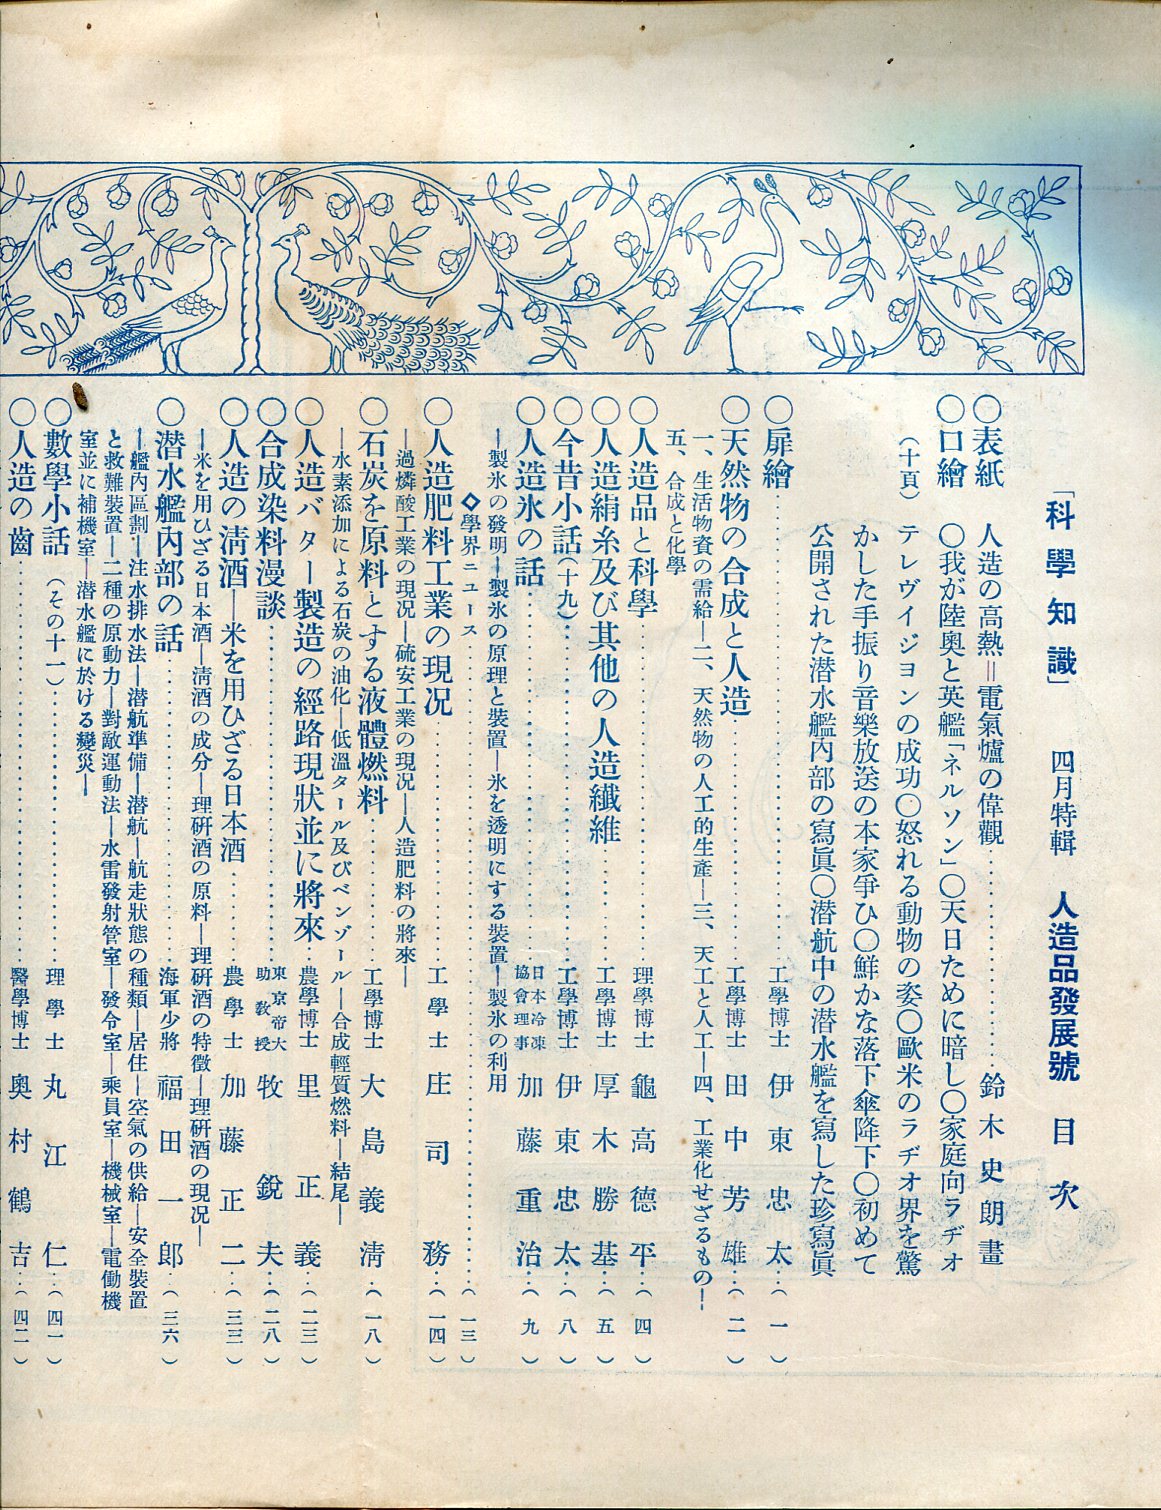 「科學知識」 四月特輯 人造品發展號 目次
〇表紙 人造の高熱=電氣爐の偉觀……鈴木史朗畫
〇口繪 〇我が陸奧と英艦「ネルソン」〇天日ために暗し〇家庭向ラヂオ
(十頁) テレヴイジヨンの成功〇怒れる動物の姿〇歐米のラヂオ界を驚
かした手振り音樂放送の本家爭ひ〇鮮かな落下傘降下〇初めて
公開された潜水艦内部の寫眞〇潜航中の潜水艦を寫した珍寫眞
〇扉繪……工學博士 伊東忠太…(一)
〇天然物の合成と人造……工學博士 田中芳雄…(二)
一、生活物資の需給―二、天然物の人工的生產―三、天工と人工―四、工業化せざるもの―
五、合成と化學
〇人造品と科學……理學博士 龜高德平…(四)
〇人造絹糸及び其他の人造纎維……工學博士 厚木勝基…(五)
〇今昔小話(十九)……工學博士 伊東忠太…(八)
〇人造氷の話……日本冷凍協會理事 加藤重治…(九)
―製氷の發明―製氷の原理と裝置―氷を透明にする裝置―製氷の利用
◇學界ニュース……(一三)
〇人造肥料工業の現況……工學士 庄司務…(一四)
―過燐酸工業の現況―硫安工業の現況―人造肥料の將來―
〇石炭を原料とする液體燃料……工學博士 大島義淸…(一八)
―水素添加による石炭の油化―低溫タール及びベンゾール―合成輕質燃料―結尾―
〇人造バター製造の經路現狀並に將來…農學博士 里正義…(二三)
〇合成染料漫談……東京帝大助敎授 牧銳夫…(二八)
〇人造の淸酒―米を用ひざる日本酒……農學士 加藤正二…(三三)
―米を用ひざる日本酒―淸酒の成分―理硏酒の原料―理硏酒の特徵―理硏酒の現況―
〇潜水艦內部の話……海軍少將 福田一郎…(三六)
―艦內區劃―注水排水法―潜航準備―潜航―航走狀態の種類―居住―空氣の供給―安全裝置
と救難裝置―二種の原動力―對敵運動法―水雷發射管室―發令室―乘員室―機械室―電働機
室並に補機室―潜水艦に於ける變災―
〇數學小話(その十一)……理學士 丸江仁…(四一)
〇人造の齒……醫學博士 奥村鶴吉…(四二)